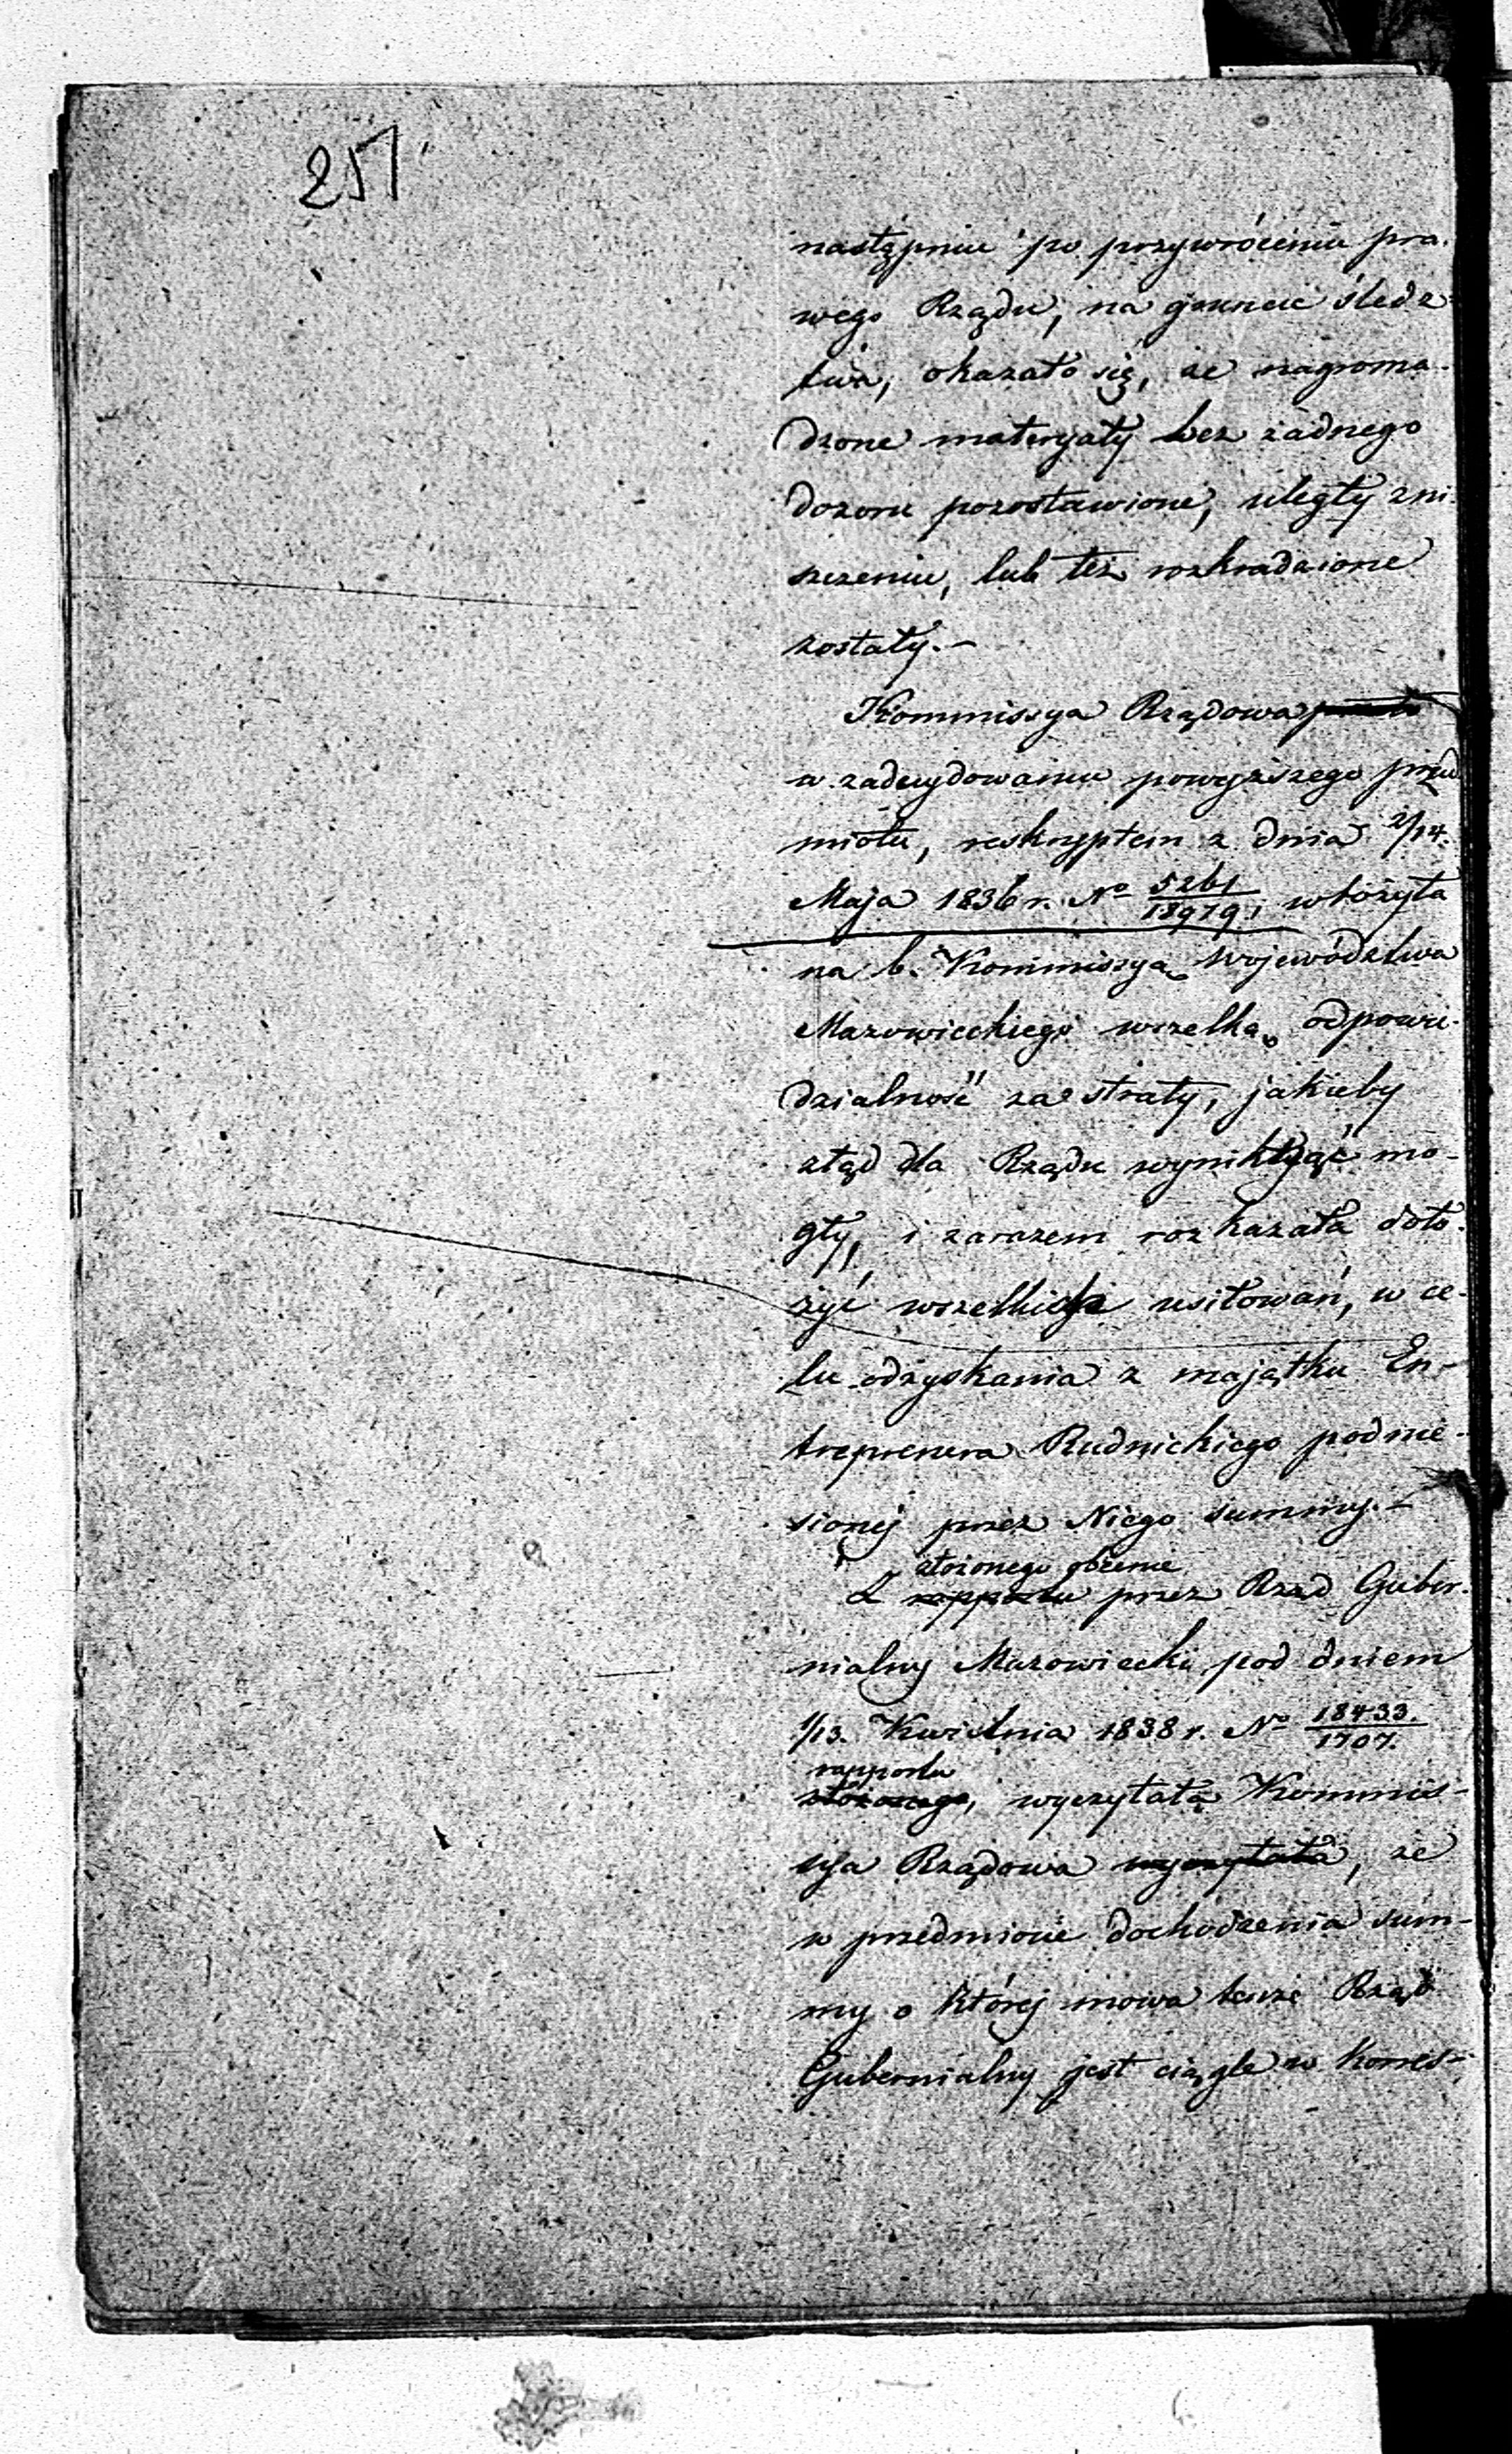 251
następnie po przywróceniu pra-
wego Rządu, na gruncie śledz
twa, okazało się, że nagroma-
dzone materyały bez żadnego
dozoru pozostawione, uległy zni
szczeniu, lub też rozkradzione
zostały.—
Kommissya Rządowa
w zadecydowaniu powyższego przed
miotu, reskryptem z dnia 2/14.
Maja 1836 r. No 5261/18979, włożyła
na b. Kommissyą Województwa
Mazowieckiego wszelką odpowie-
dzialność za straty, jakieby
ztąd dla Rządu wyniknąć mo-
gły, i zarazem rozkazała doło-
żyć wszelkich usiłowań, w ce-
lu odzyskania z majątku En-
treprenera Rudnickiego podnie-
sionej przez Niego summy.—
złożonego obecnie
Z rapportu przez Rząd Guber-
nialny Mazowiecki pod dniem
1/13. Kwietnia 1838 r. No 18433./1707.
rapportu
złożonego, wyczytała Kommis-
sya Rządowa wyczytała, że
w przedmiocie dochodzenia sum-
my o której mowa tenże Rząd
Gubernialny jest ciągle w korres-